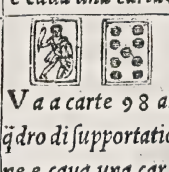 e caua una carta
Va a carte 98 a
q̃dro di ſupportatio
ne e caua una car